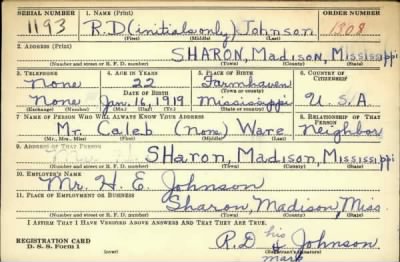 SERIAL NUMBER 1. NAME (Print) ORDER NUMBER
1193 R.D (initials only) Johnson 1308
(First) (Middle) (Last)
2. ADDRESS (Print)
SHARON, Madison, Mississippi
(Number and street or R. F. D. number) (Town) (County) (State)
3. TELEPHONE 4. AGE IN YEARS 5. PLACE OF BIRTH 6. COUNTRY OF CITIZENSHIP
None 22 Farmhaven
DATE OF BIRTH (Town or county)
None Jan. 16, 1919 Mississippi U.S.A
(Exchange) (Number) (Mo.) (Day) (Yr.) (State or country)
7. NAME OF PERSON WHO WILL ALWAYS KNOW YOUR ADDRESS 8. RELATIONSHIP OF THAT PERSON
Mr. Caleb (None) Ware Neighbor
(Mr., Mrs., Miss) (First) (Middle) (Last)
9. ADDRESS OF THAT PERSON
SHaron, Madison, Mississippi
(Number and street or R. F. D. number) (Town) (County) (State)
10. EMPLOYER'S NAME
Mr. H. E. Johnson
11. PLACE OF EMPLOYMENT OR BUSINESS
Sharon, Madison, Miss.
(Number and street or R. F. D. number) (Town) (County) (State)
I AFFIRM THAT I HAVE VERIFIED ABOVE ANSWERS AND THAT THEY ARE TRUE.
REGISTRATION CARD
D. S. S. FORM 1 (over)
his
R.D. x Johnson
(Registrant's signature)
mark